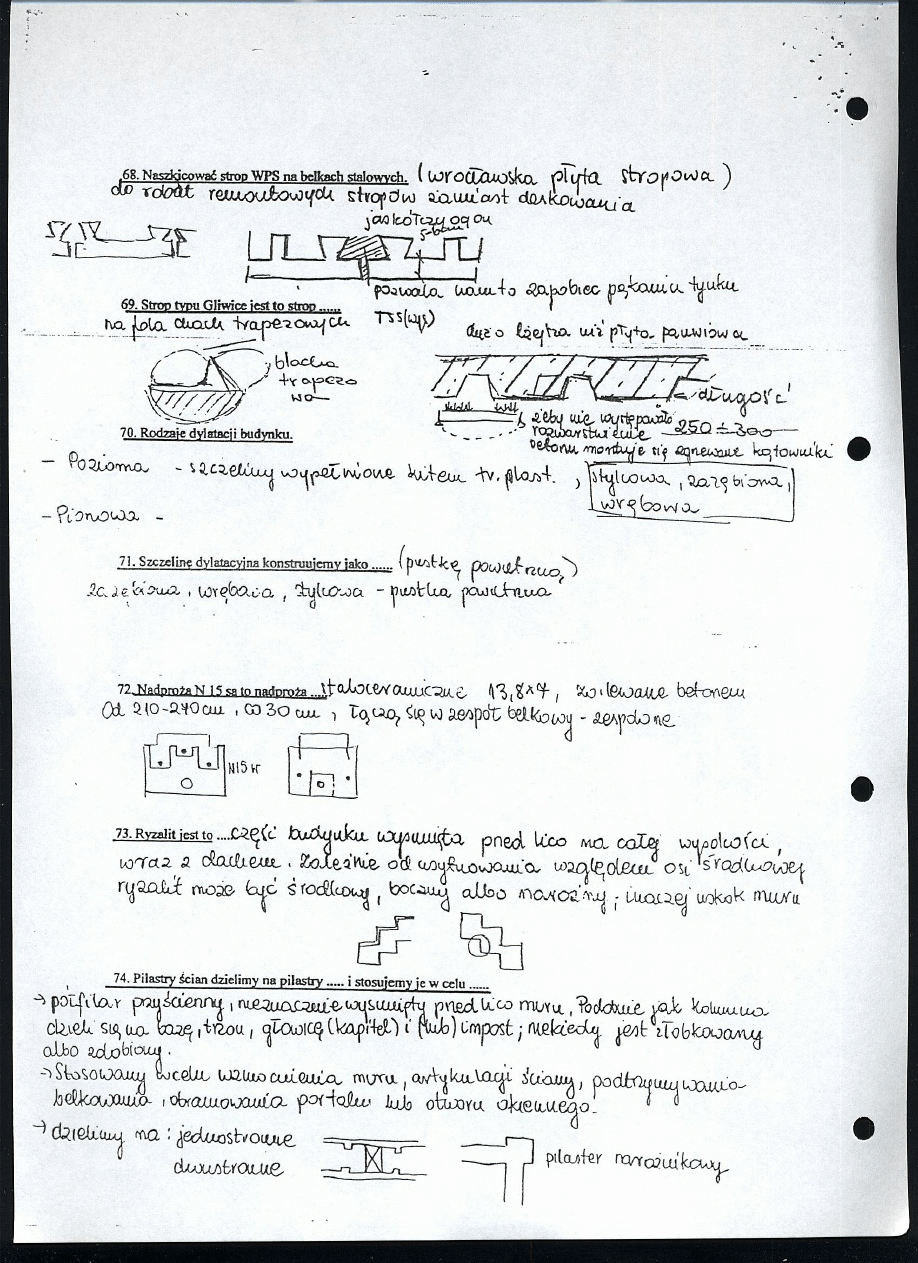 68. Naszkicować strop WPS na belkach stalowych. (wrocławska płyta stropowa)
do robót remontowych stropów zamiast deskowania
jaskółczy ogon
pozwala nam to zapobiec pękaniu tynku
69. Strop typu Gliwice jest to strop ......
na fałdach trapezowych TSS(wys)
dużo lżejsza niż płyta panwiowa
blacha
trapezo
wa
długość
250 ÷ 300
żeby nie występowało
rozwarstwienie
betonu montuje się zgrzewane kątowniki
70. Rodzaje dylatacji budynku.
- Pozioma - szczeliny wypełnione kitem tr. plast. , stykowa, zazębiona,
wrębowa
- Pionowa -
71. Szczelinę dylatacyjna konstruujemy jako ...... (pustkę powietrzną)
zazębiona, wrębowa, stykowa - pustka powietrzna
72. Nadproża N 15 sa to nadproża .... staloceramiczne 13,8x7, zalewane betonem
Od 210-270 cm, co 30 cm, łączą się w zespół belkowy - zespolone
N15
73. Ryzalit jest to .... część budynku wysunięta przed lico na całej wysokości,
wraz z dachem. Zależnie od usytuowania względem osi środkowej
ryzalit może być środkowy, boczny albo narożny; inaczej uskok muru
74. Pilastry ścian dzielimy na pilastry ..... i stosujemy je w celu ......
→ półfilar przyścienny, nieznacznie wysunięty przed lico muru. Podobnie jak kolumna
dzieli się na bazę, trzon, głowicę (kapitel) i (lub) impost; niekiedy jest żłobkowany
albo zdobiony.
→ Stosowany w celu wzmocnienia muru, artykulacji ściany, podtrzymywania
belkowania, obramowania portalu lub otworu okiennego.
→ dzielimy na: jednostronne
dwustronne
pilaster narożnikowy